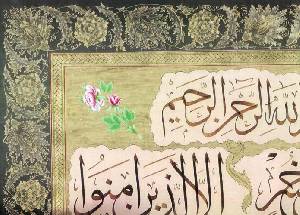 الله الرحمن الرحيم
الا الذين امنوا